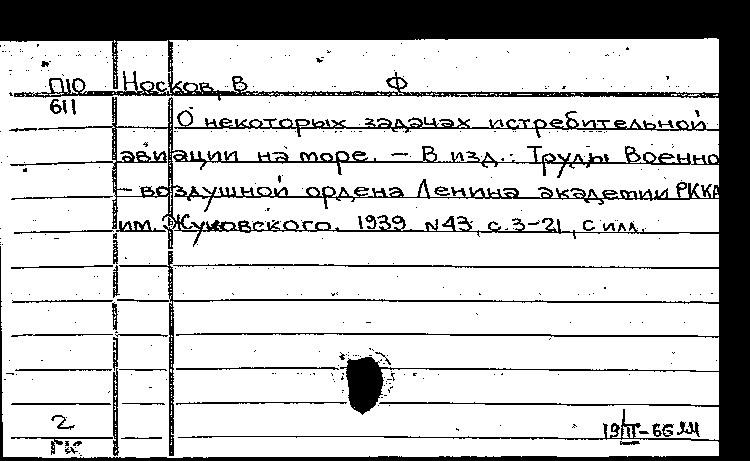 П10 Носков, В Ф
611
О некоторых задачах истребительной
авиации на море. – В изд.: Труды Военно
- воздушной ордена Ленина академии РККА
им. Жуковского. 1939. N43, с. 3-21, с илл.
2
ГК